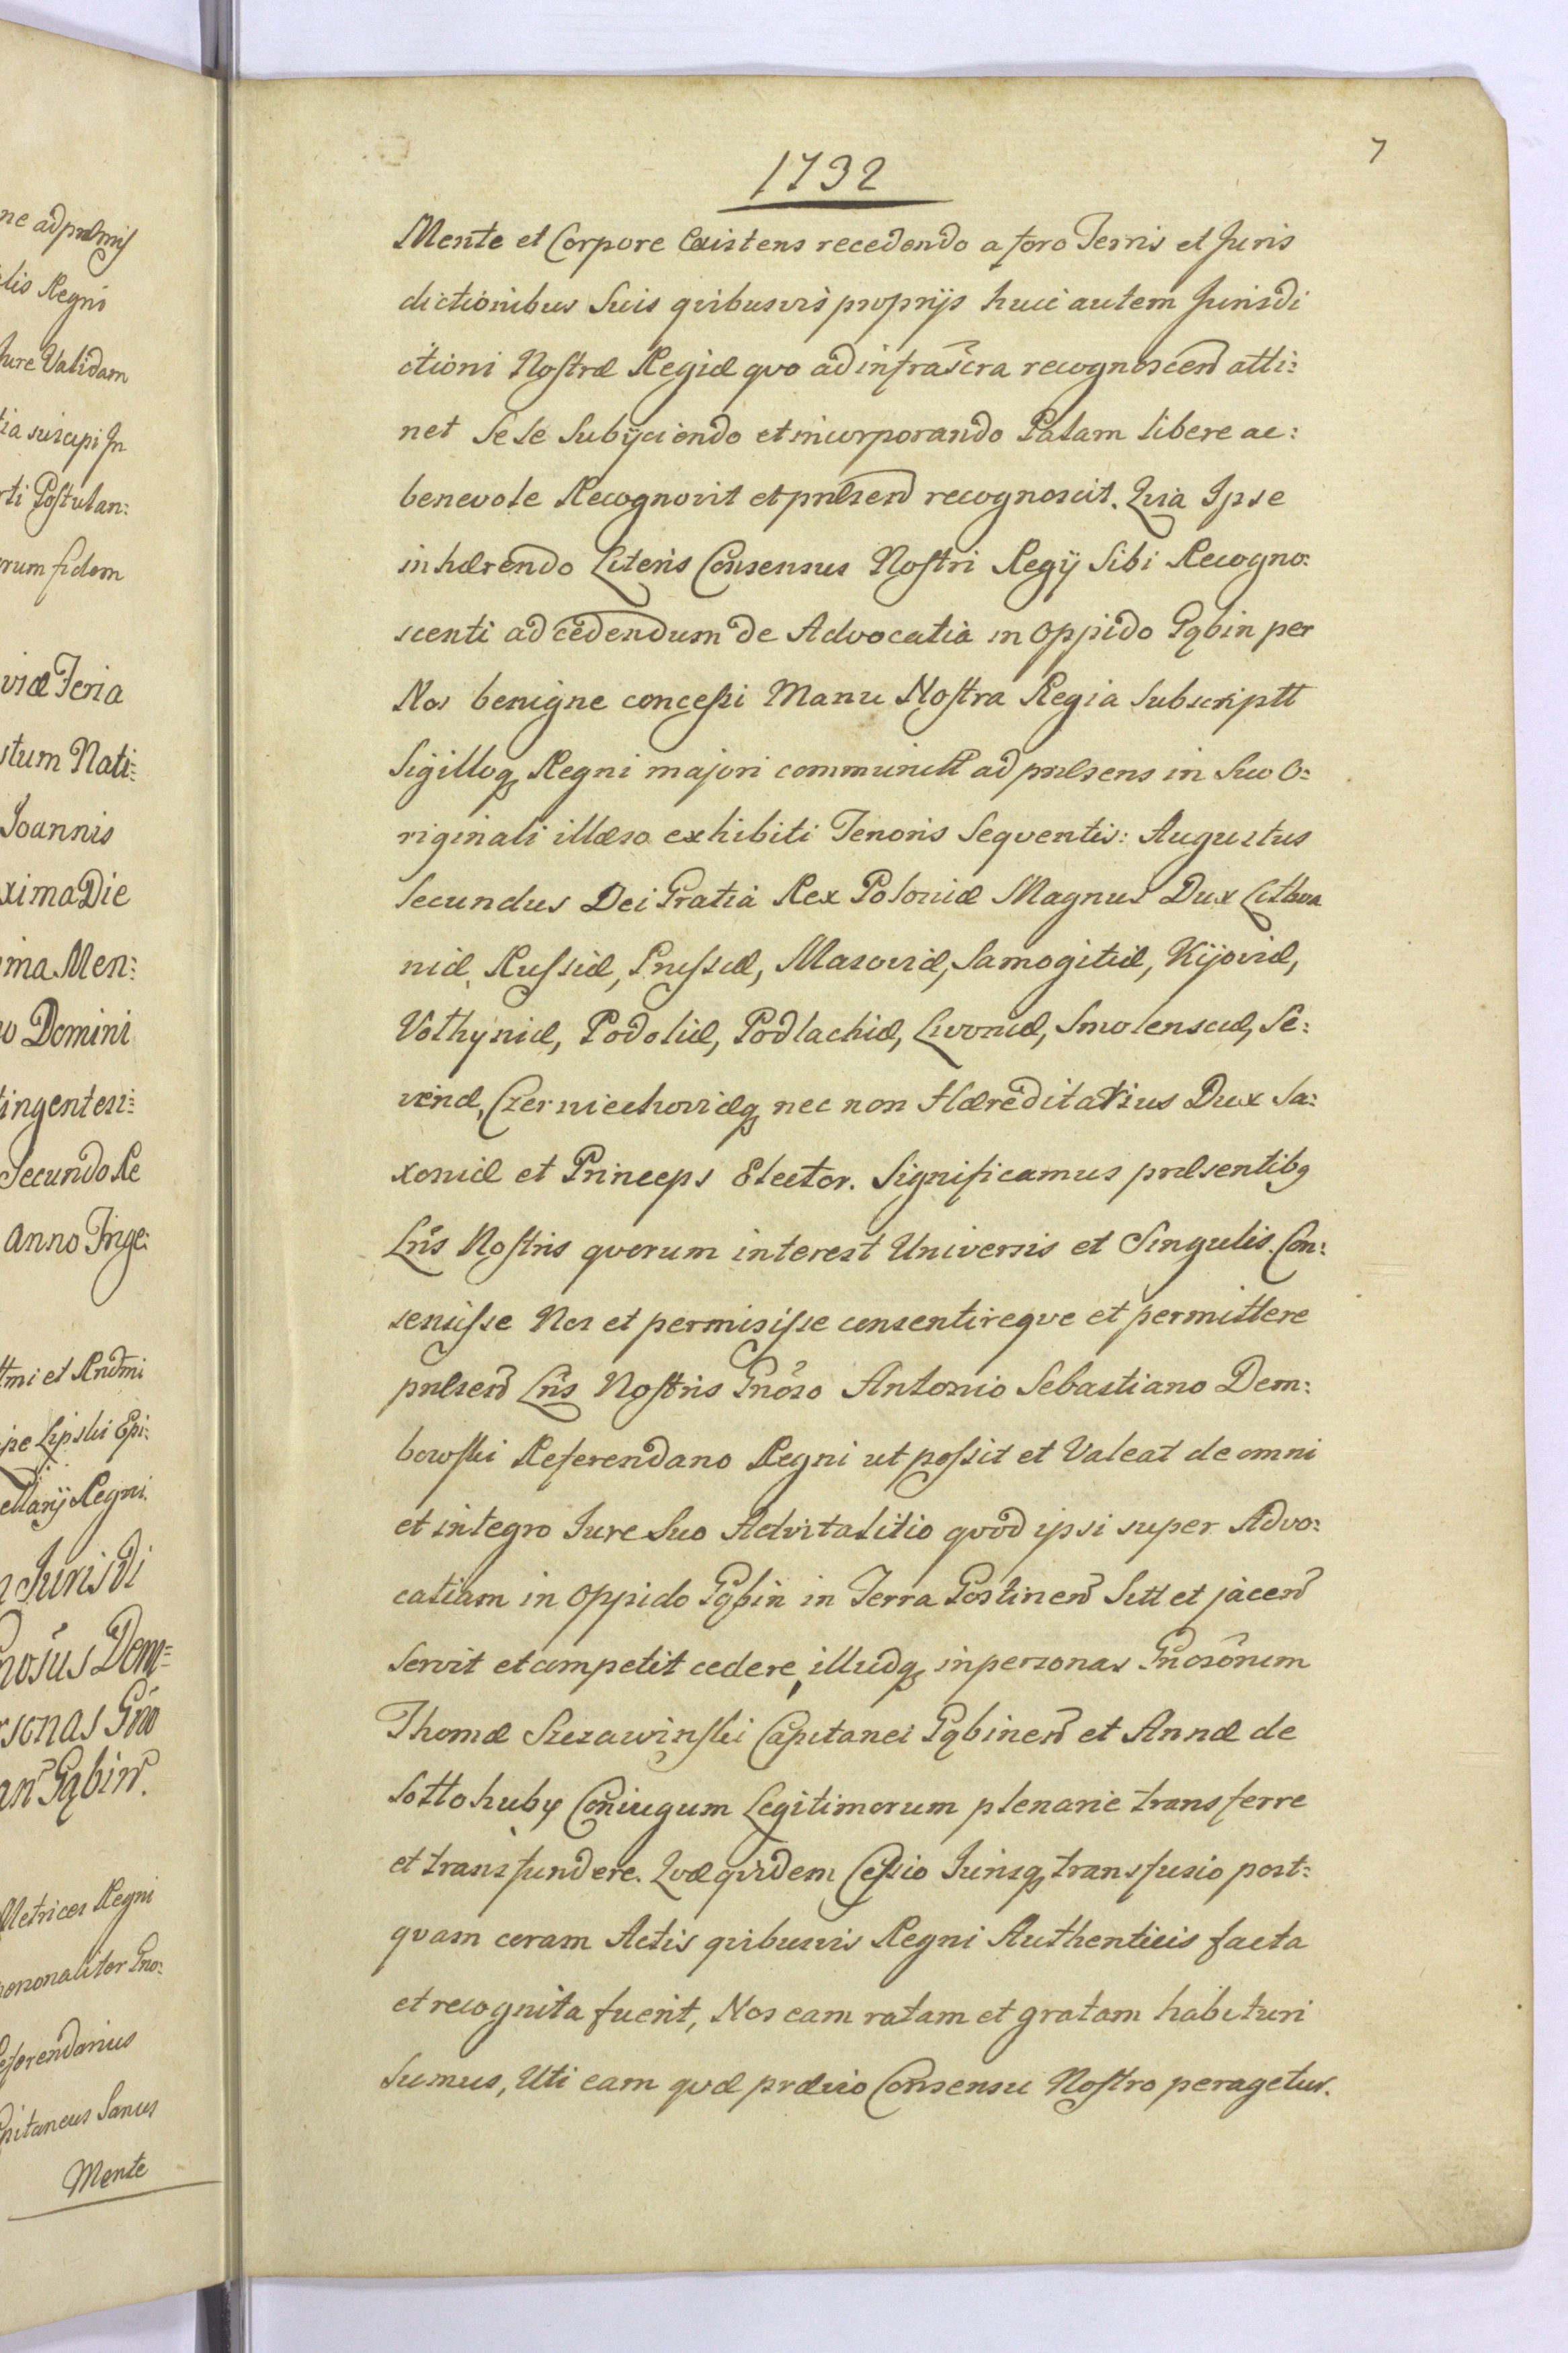 ne ad prӕmis
elis Regni
Jure Validam
tia suscipi In
rti Postulan:
rum fidem
viӕ Feria
stum Nati:
Joannis
xima Die
ima Men:
o Domini
tingentesi:
Secundo Re
anno Trige:
ttmi et Rndmi
pe Lipski Epi:
ellarij Regni.
n Jurisdi
nosus Dem=
rsonas Gno
an Gąbin.
Metrices Regni
personaliter Gno:
Referendarius
Capitaneus Sanus
Mente
7
1732
Mente et Corpore Existens recedendo a foro Terris et Juris
dictionibus Suis quibusvis proprijs huic autem Jurisdi
ctioni Nostræ Regiæ quo ad infrascra recognoscen atti:
net Se se Subijciendo et incorporando Palam libere ac:
benevole Recognovit et prӕsen recognoscit. Quia Ipse
inhærendo Literis Consensus Nostri Regij Sibi Recogno:
scenti ad cedendum de Advocatia in Oppido Gąbin per
Nos benigne concessi Manu Nostra Regia Subscriptt
Sigilloq Regni majori communitt ad præsens in Suo O:
riginali illæso exhibiti Tenoris Sequentis: Augustus
Secundus Dei Gratia Rex Poloniæ Magnus Dux Lithva
niæ, Russiæ, Prussiæ, Masoviæ, Samogitiæ, Kijoviæ,
Volhyniæ, Podoliæ, Podlachiæ, Livoniæ, Smolensciæ, Se:
veriæ, Czerniechoviæq nec non Hæreditarius Dux Sa:
xoniæ et Princeps Elector. Significamus præsentibg
Lris Nostris quorum interest Universis et Singulis. Con:
sensisse Nos et permisisse consentireque et permittere
præsen Lris Nostris Gnoso Antonio Sebastiano Dem:
bowski Referendario Regni ut possit et Valeat de omni
et integro Jure Suo Advitalitio quod ipsi super Advo:
catiam in Oppido Gąbin in Terra Gostinen Sitt et jacen
servit et competit cedere, illudq in personas Gnosorum
Thomæ Szczawinski Capitanei Gąbinen et Annæ de
Sottohuby Coniugum Legitimorum plenarie transferre
et transfundere. Quæ quidem Cessio Jurisq transfusio post:
quam coram Actis quibusvis Regni Authenticis facta
et recognita fuerit, Nos eam ratam et gratam habituri
Sumus, Uti eam quæ prævio Consensu Nostro peragetur.